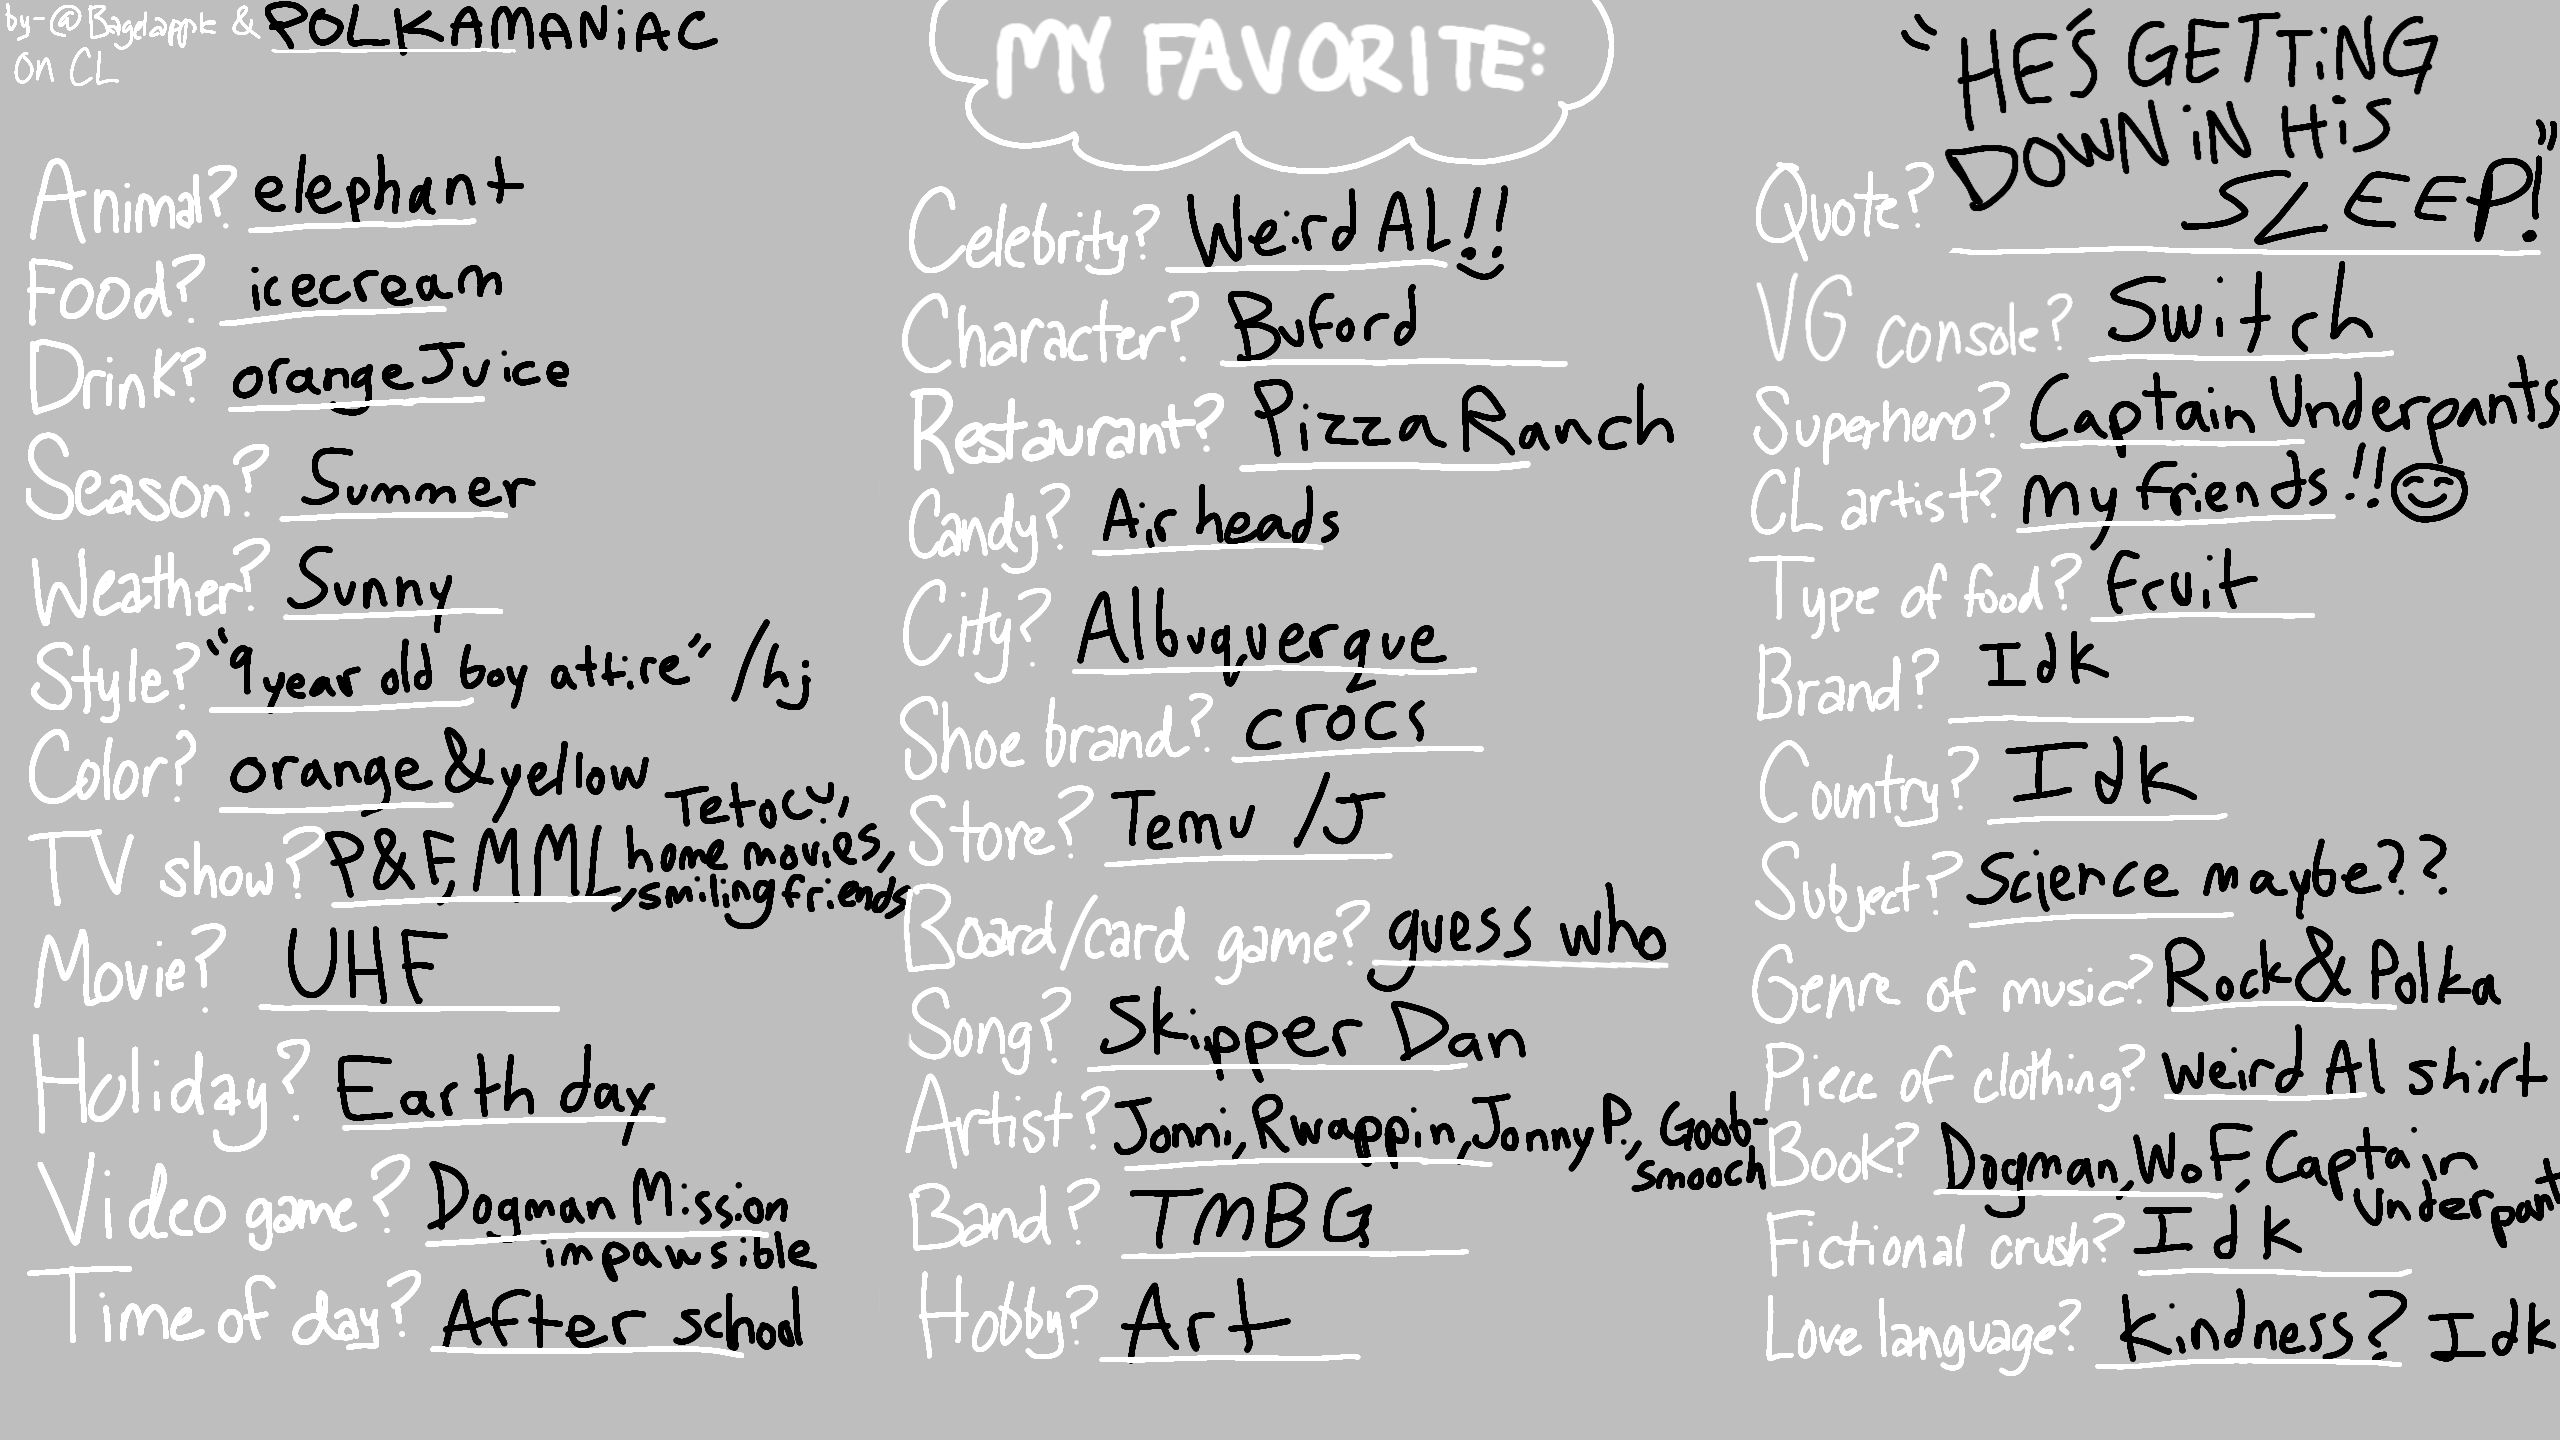 by-@Bagelappk & POLKAMANiAC
on CL
MY FAVORITE:
Animal? elephant
Food? icecream
Drink? orange Juice
Season? Summer
Weather? Sunny
Style? "9 year old boy attire" /hj
Color? orange & yellow
TV show? P&F, MML, Tetocu, home movies, smiling friends
Movie? UHF
Holiday? Earth day
Video game? Dogman Mission
impawsible
Time of day? After school
Celebrity? Weird AL!!
Character? Buford
Restaurant? Pizza Ranch
Candy? Air heads
City? Albuquerque
Shoe brand? crocs
Store? Temu /J
Board/card game? guess who
Song? Skipper Dan
Artist? Jonni, Rwappin, Jonny P., Goob-
smooch
Band? TMBG
Hobby? Art
"HE'S GETTiNG
DOWN iN HiS
Quote? SLEEP!"
VG console? Switch
Superhero? Captain Underpants
CL artist? my friends!!
Type of food? fruit
Brand? Idk
Country? Idk
Subject? Science maybe??
Genre of music? Rock & Polka
Piece of clothing? Weird Al shirt
Book? Dogman, WoF, Captain
Underpant
Fictional crush? Idk
Love language? kindness? Idk